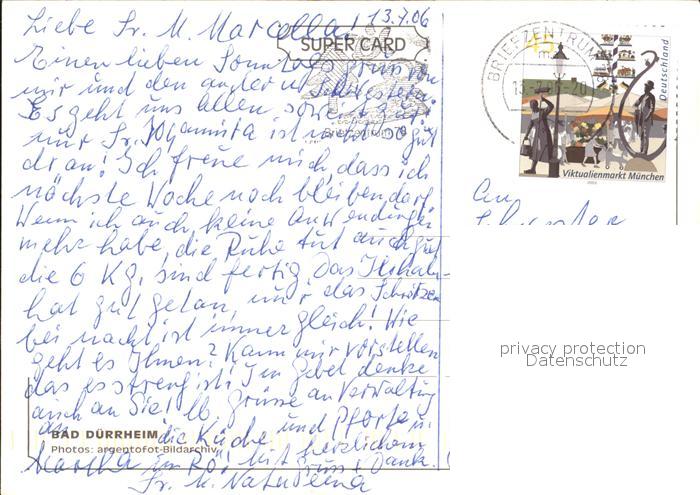 Liebe Sr. M. Marcella! 13.7.06
SUPER CARD
Einen lieben Sonntagsgruss von
mir und den anderen Schwestern.
Es geht uns allen soweit gut
nur Sr. Johannita ist nicht so gut
dran! Ich freue mich, dass ich
nächste Woche noch bleiben darf.
Wenn ich auch keine Anwendungen
mehr habe, die Ruhe tut auch gut
die 6 Kg. sind fertig. Das Inhalu-
hat gut getan, nur das Schwitzen
bei nacht ist immer gleich! Wie
geht es Ihnen? Kann mir vorstellen
das es streng ist! Im Gebet denke
auch an Sie! lb. grüsse an Verwaltung
an die Küche und Pforte u.
BAD DÜRRHEIM
Photos: argentofot-Bildarchiv
Martha im Rö! Mit herzlichem
Gruss + Dank.
Sr. M.
BRIEFZENTRUM
45
Deutschland
Viktualienmarkt München
An
privacy protection
Datenschutz